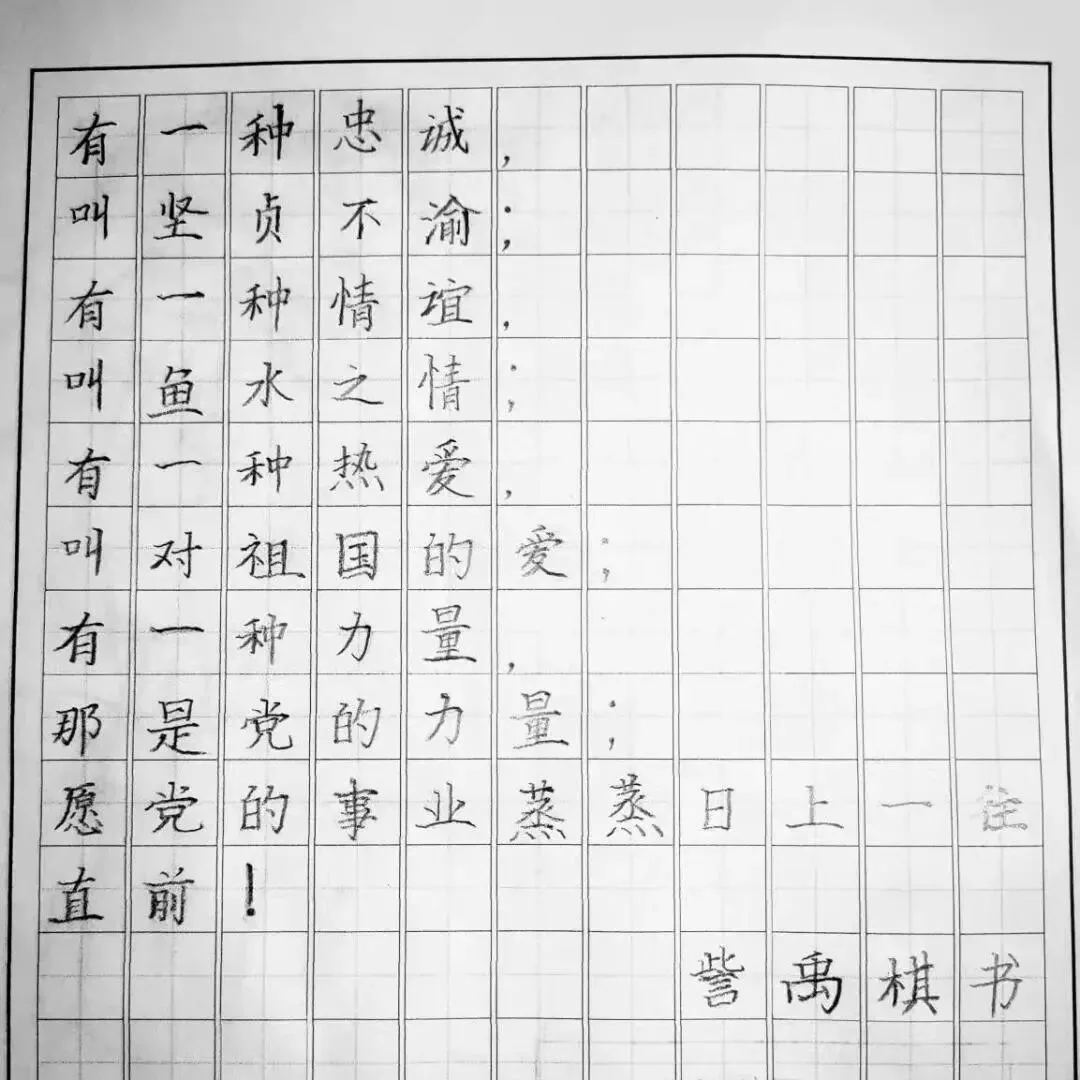 有一种忠诚,
叫坚贞不渝;
有一种情谊,
叫鱼水之情;
有一种热爱,
叫对祖国的爱;
有一种力量,
那是党的力量;
愿党的事业蒸蒸日上一往
直前!
訾禹棋书